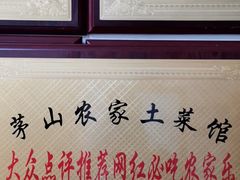 茅山农家土菜馆
大众点评推荐网红必吃农家乐